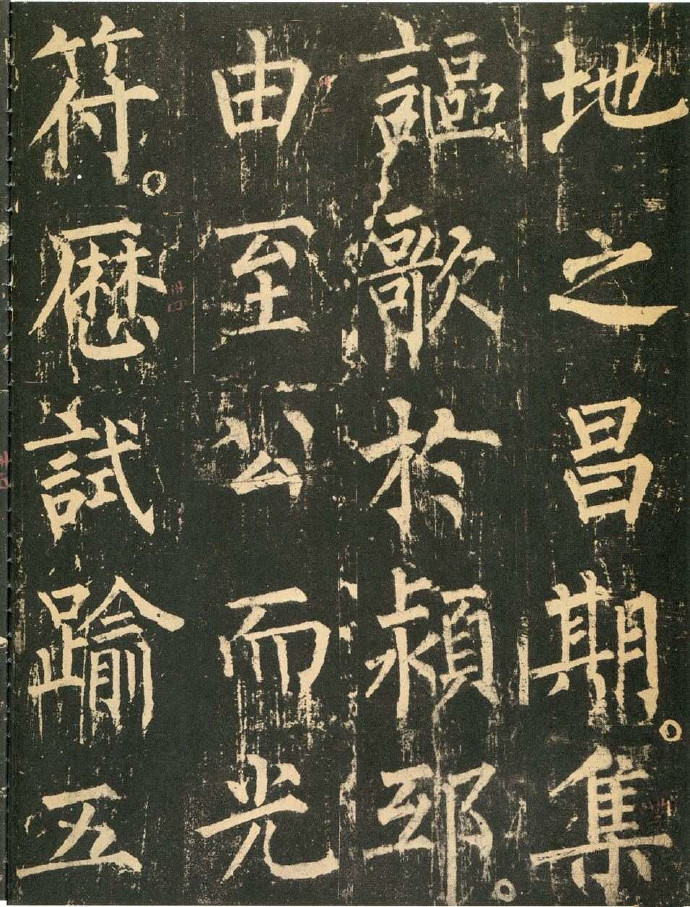 地之昌期。集
謳歌於潁邳。
由至公而光
符。歴試踰五